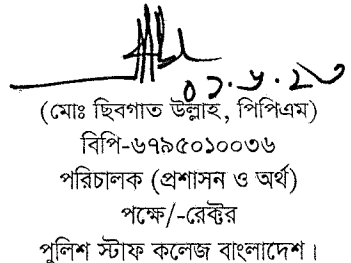 (মোঃ ছিবগাত উল্লাহ, পিপিএম)
বিপি-৬৭৯৫০১০০৩৬
পরিচালক (প্রশাসন ও অর্থ)
পক্ষে/-রেক্টর
পুলিশ স্টাফ কলেজ বাংলাদেশ।